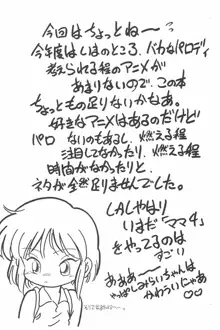 今回はちょっとね〜〜?
今年度はいまのところ、バカなパロディ
考えられる程のアニメが
あまりないので、この本
ちょっともの足りないかなあ。
好きなアニメはあるのだけど
パロ ないのもあるし、燃える程
注目してなかったり、燃える
時間がなかったりと
ネタが全然ありませんでした。
しかしやはり
いまだ「ママ4」
をやってるのは
すごい
あああ〜〜
やっぱしみらいちゃんは
かわういなあっ